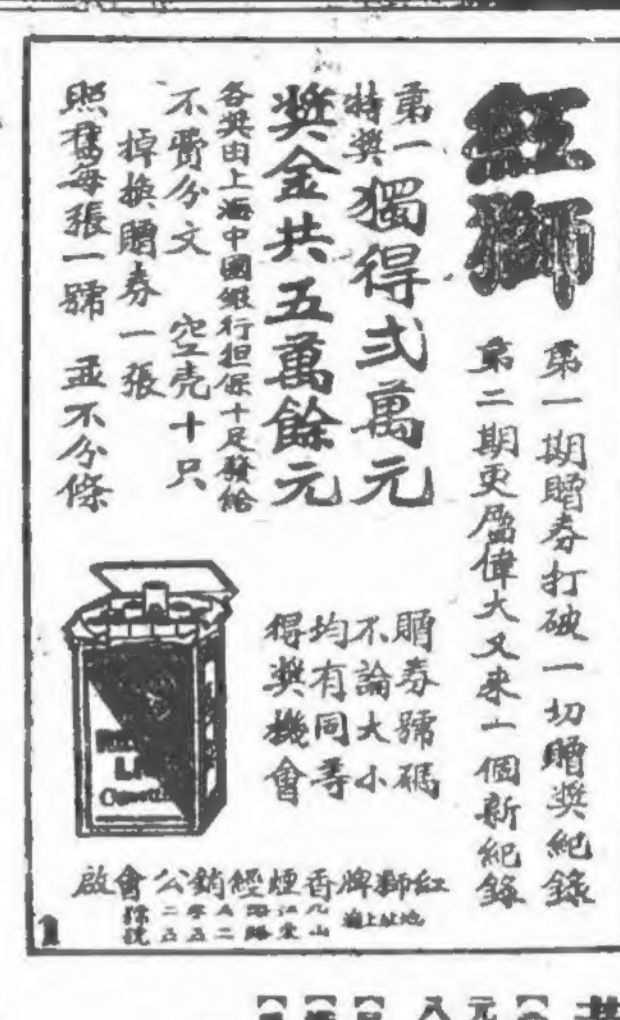 紅獅
第一期贈券打破一切贈獎紀錄
第二期更屬偉大又来一個新紀錄
第一特獎 獨得弍萬元
獎金共五萬餘元
各獎由上海中國銀行担保十足發給
不費分文 空壳十只
掉換贈券一張
照舊每張一號 並不分條
贈券號碼
不論大小
均有同等
得獎機會
紅獅牌香煙經銷公會啟
地址上海